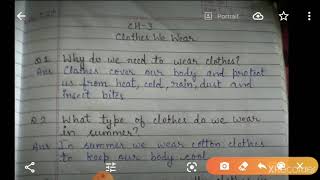 Portrait
CH-3
Clothes We Wear
Q1 Why do we need to wear clothes?
Ans Clothes cover our body and protect
us from heat, cold, rain, dust and
insect bites
Q.2 What type of clothes do we wear
in summer?
Ans In summer we wear cotton clothes
to keep our body cool